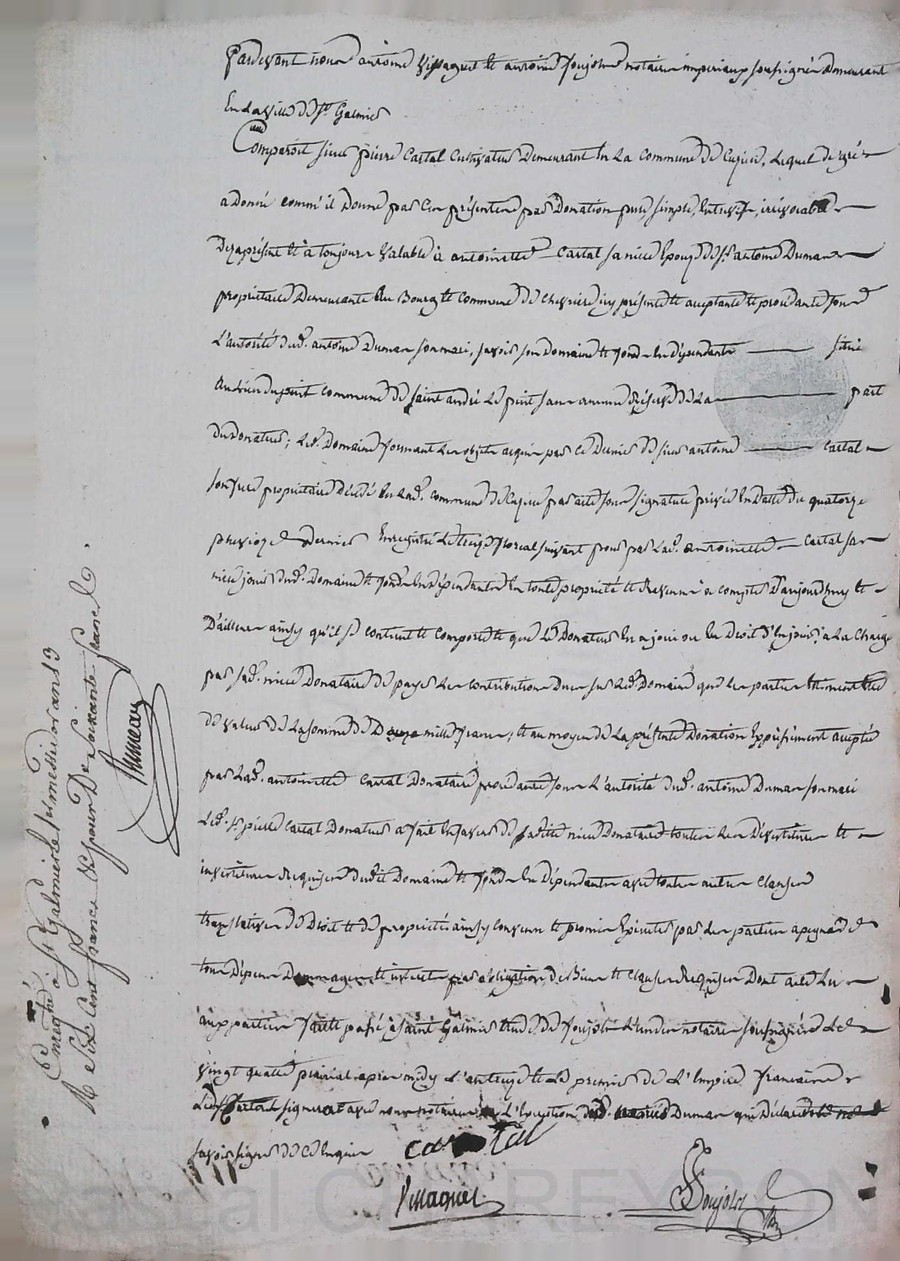 Pardevant nous antoine Vissaguet et antoine Soujols notaires imperiaux soussignés Demeurant
En La ville de St Galmier
Comparoit Sieur pierre Cartal Cultivateur Demeurant En La Commune de Cuzieu, Lequel de gré
a Donné comm'il Donne par Ces présentes par Donation pure, simple, Entrevifs, irrévocable
Dezaprésent et à toujours Valable à antoinette Cartal sa niece Epouze de Sr antoine Dumas
propriétaire Demeurante Au Bourg et Commune de Chevrieres icy présente et acceptante et procédante sous
L'autorité dud. antoine Dumas son mari, savoir son Domaine et fonds En dépendants situé
Au Lieu Dupuit Commune de Saint andré Le puit sans aucune Réserve de La part
du Donateur; Led. Domaine formant Les objets acquis par ce Dernier de sieur antoine Cartal
son propriétaire Décédé En Lad. commune de Cuzieu par acte sous signature privée En Datte du quatorze
pluviose Dernier Enregistré Le treize floreal suivant pour par Lad. antoinette Cartal sa
niece jouir dud. Domaine et fonds En dépendants En toute propriété et Revenus a compter D'aujourdhuy et
D'ailleurs ainsy qu'il se contient et Compose et que Le Donateur En a joui ou En Droit d'En jouir, a La Charge
par sad. niece Donataire de payer Les contributions Dues sur Led. Domaine que Les parties
de valeur de La somme de Douze mille francs; et au moyen de La présente Donation Expressément acceptée
par Lad. antoinette Cartal Donataire procédante sous L'autorité dud. antoine Dumas son mari
Led. Sr pierre Cartal Donateur a fait En faveur de sadite niece Donataire toutes Les Dévestitures et
investitures Requises dudit Domaine et fonds En Dépendants avec toutes autres Clauses
translatives de Droit et de propriété ainsy convenu et promis Exécuter par Les parties apeyne de
tous Dépens Dommages et interets par obligation de Biens et Clauses Requises Dont acte Lu
aux parties fait et passé à Saint Galmier Etude de Soujols L'un des notaires soussignés Le
vingt quatre prairial apres midy L'an treize et Le premier de L'Empire francais
signeront avec nous notaires à L'Exception Dumas qui Déclare ne
savoir signer de Ce Enquis
Cartal
Vissaguet
Soujols
Enregtré a St Galmier le messidor an 13
Re Six Cent francs Et pour De Soixante francs